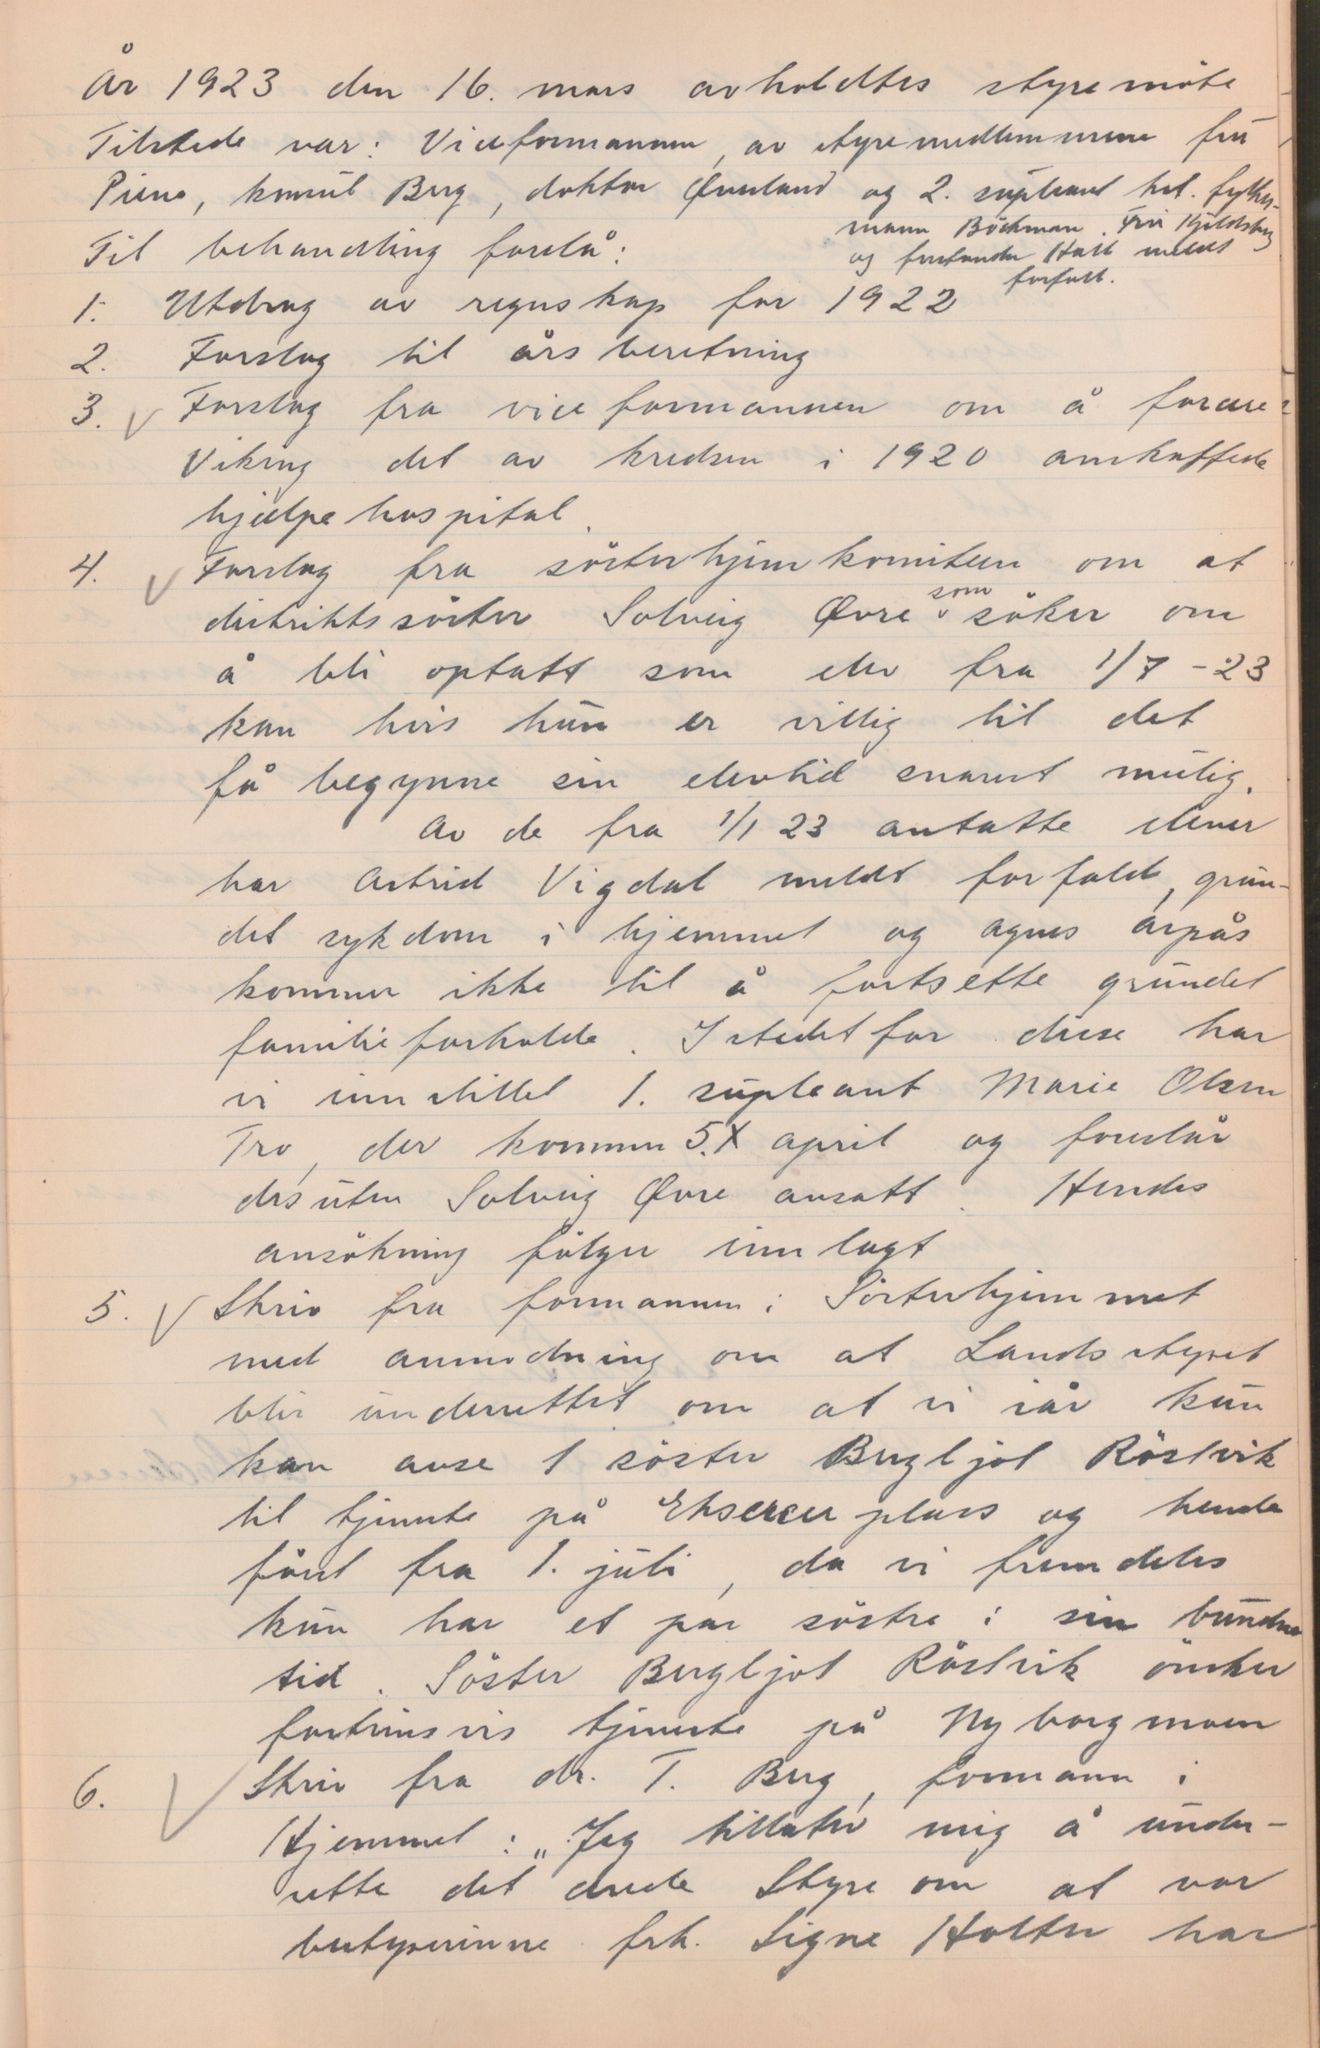 År 1923 den 16. mars avholdtes styremöte
Tilstede var: Viceformannen, av styremedlemmene frü
Piene, konsül Berg, doktor Øverland og 2. süpleant frk. fylkes-
mann Böckman. Frü Kjeldsberg
og forstander Hall meldt
forfall.
Til behandling forelå:
1. Utdrag av regnskap for 1922
2. Forslag til årsberetning
3. Forslag fra viceformannen om å forære
Viking det av kredsen i 1920 anskaffede
hjælpehospital.
4. Forslag fra södsterhjemkomiteen om at
distriktssöster Solveig Øvre som söker om
å bli optatt som elev fra 1/7 - 23
kan hvis hün er villig til det
få begynne sin elevtid snarest mülig.
Av de fra 1/1 23 antatte elever
har Astrid Vigdal meldt forfald, grün-
det sykdom i hjemmet og Agnes Arpås
kommer ikke til å fortsette gründet
familieforholde. Istedetfor disse har
vi innstillet 1. süpleant Marie Olsen
Tro, der kommer 5. april og foreslår
desüten Solveig Øvre ansatt. Hendes
ansökning fölger innlagt
5. Skriv fra formannen i Sösterhjemmet
med anmodning om at Landsstyret
blir ünderrettet om at vi iår kün
kan avse 1 söster Bergljot Röstvik
til tjeneste på Ekserserplass og hende
först fra 1. jüli, da vi fremdeles
kün har et par söstre i sin bündne
tid. Söster Bergljot Röstvik önsker
fortrinsvis tjeneste på Nyborgmoen
6. Skriv fra dr. T. Berg, formann i
Hjemmet: „Jeg tillater mig å ünder-
rette det ærede Styre om at vor
bestyrerinne frk. Signe Holter har